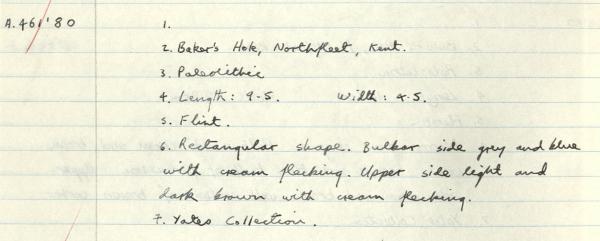 A.461'80 1.
2. Baker's Hole, Northfleet, Kent.
3. Paleolithic
4. Length: 9.5. Width: 4.5.
5. Flint.
6. Rectangular shape. Bulbar side grey and blue
with cream flecking. Upper side light and
dark brown with cream flecking.
7. Yates Collection.